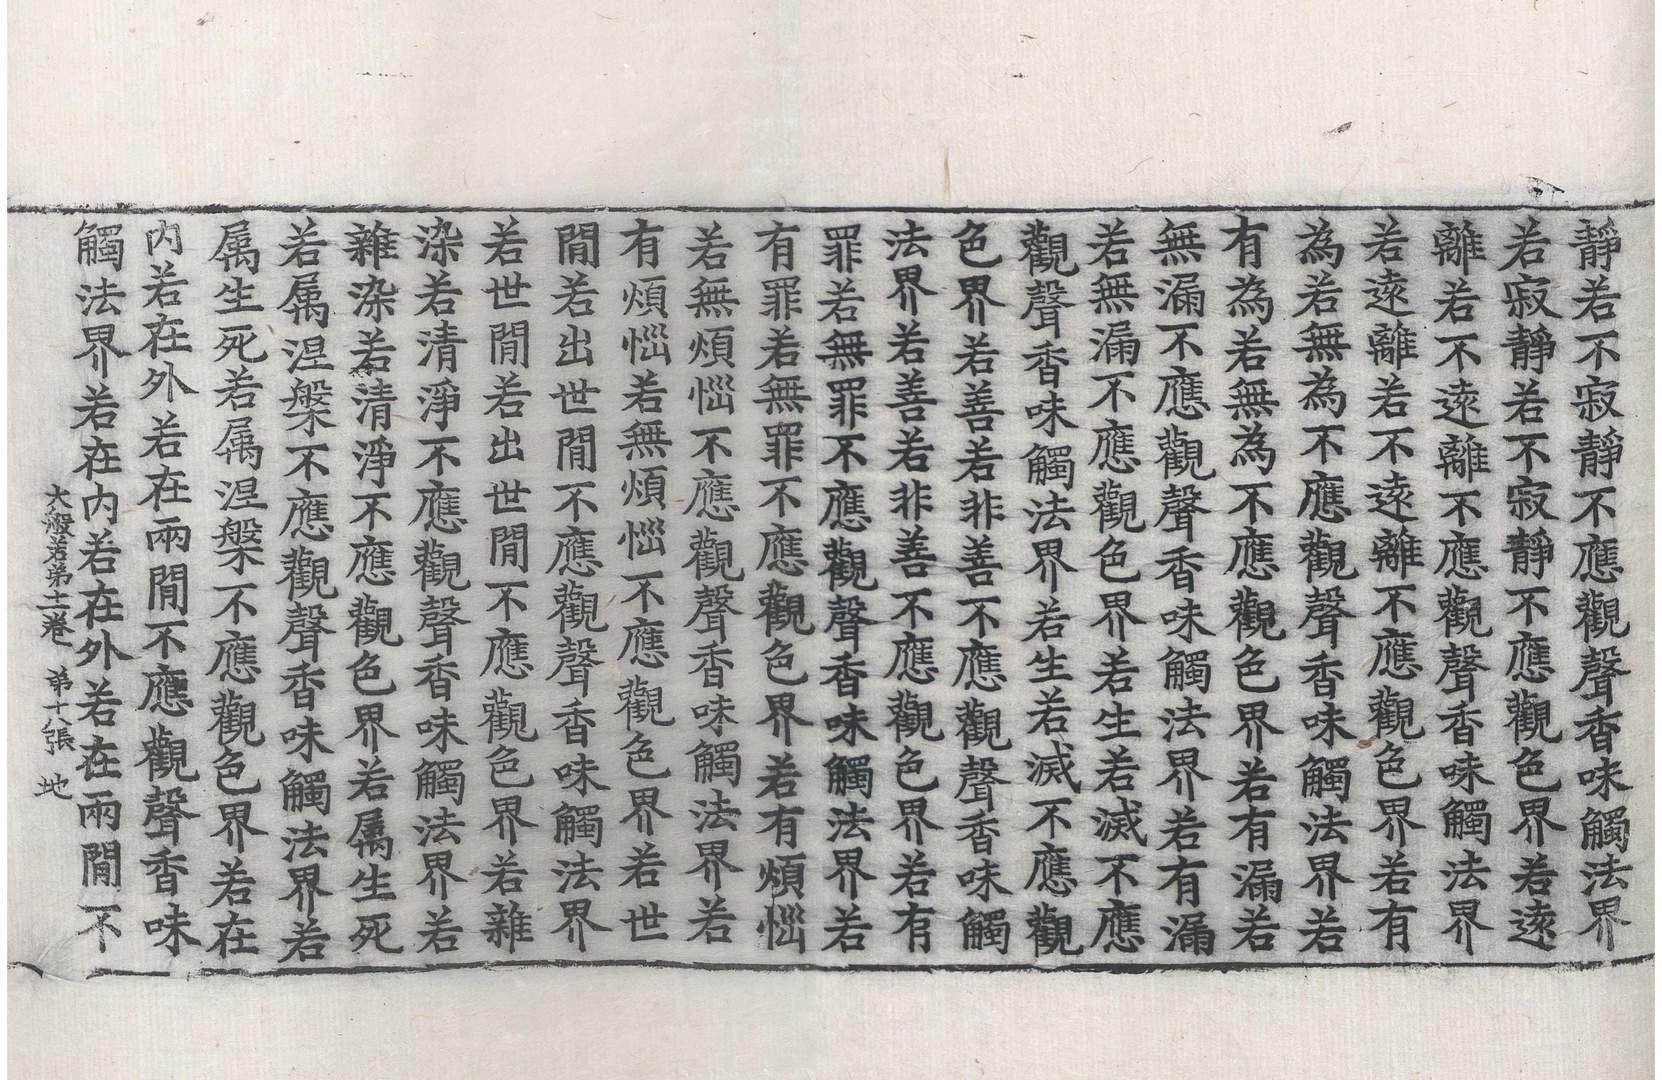 靜若不寂靜不應觀聲香味觸法界
若寂靜若不寂靜不應觀色界若遠
離若不遠離不應觀聲香味觸法界
若遠離若不遠離不應觀色界若有
為若無為不應觀聲香味觸法界若
有為若無為不應觀色界若有漏若
無漏不應觀聲香味觸法界若有漏
若無漏不應觀色界若生若滅不應
觀聲香味觸法界若生若滅不應觀
色界若善若非善不應觀聲香味觸
法界若善若非善不應觀色界若有
罪若無罪不應觀聲香味觸法界若
有罪若無罪不應觀色界若有煩惱
若無煩惱不應觀聲香味觸法界若
有煩惱若無煩惱不應觀色界若世
閒若出世閒不應觀聲香味觸法界
若世閒若出世閒不應觀色界若雜
染若清淨不應觀聲香味觸法界若
雜染若清淨不應觀色界若属生死
若属涅槃不應觀聲香味觸法界若
属生死若属涅槃不應觀色界若在
內若在外若在兩閒不應觀聲香味
觸法界若在內若在外若在兩閒不
大般若第十一卷 第十八張 地